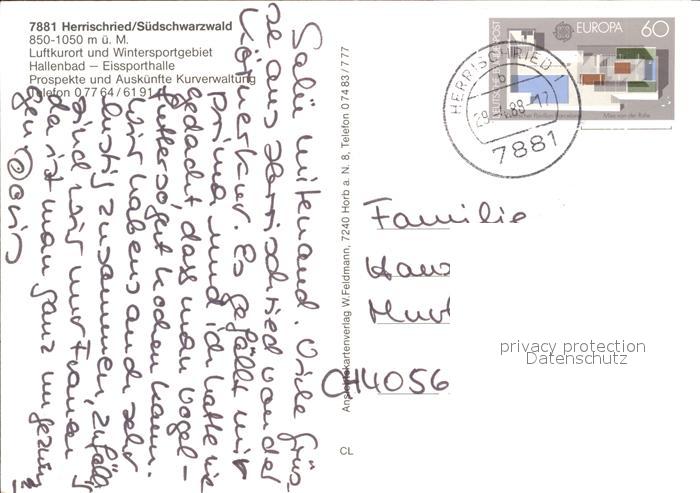 7881 Herrischried/Südschwarzwald
850-1050 m ü. M.
Luftkurort und Wintersportgebiet
Hallenbad — Eissporthalle
Prospekte und Auskünfte Kurverwaltung
Telefon 0 77 64 / 61 91
Salü mitenand. Viele Grüs-
se aus Herrischried von der
Körnerkur. Es gefällt mir
prima und ich hätte nie
gedacht dass man Vogel-
futter so gut kochen kann.
Wir habens auch sehr
lustig zusammen, zufällig
sind wir nur Frauen
da ist man ganz ungezwun-
gen Doris
Ansichtskartenverlag W. Feldmann, 7240 Horb a. N. 8, Telefon 0 74 83 / 7 77
CL
DEUTSCHE BUNDESPOST
EUROPA 60
Deutscher Pavillon Barcelona Mies van der Rohe
HERRISCHRIED 1
88-17
7881
Familie
CH 4056
privacy protection
Datenschutz